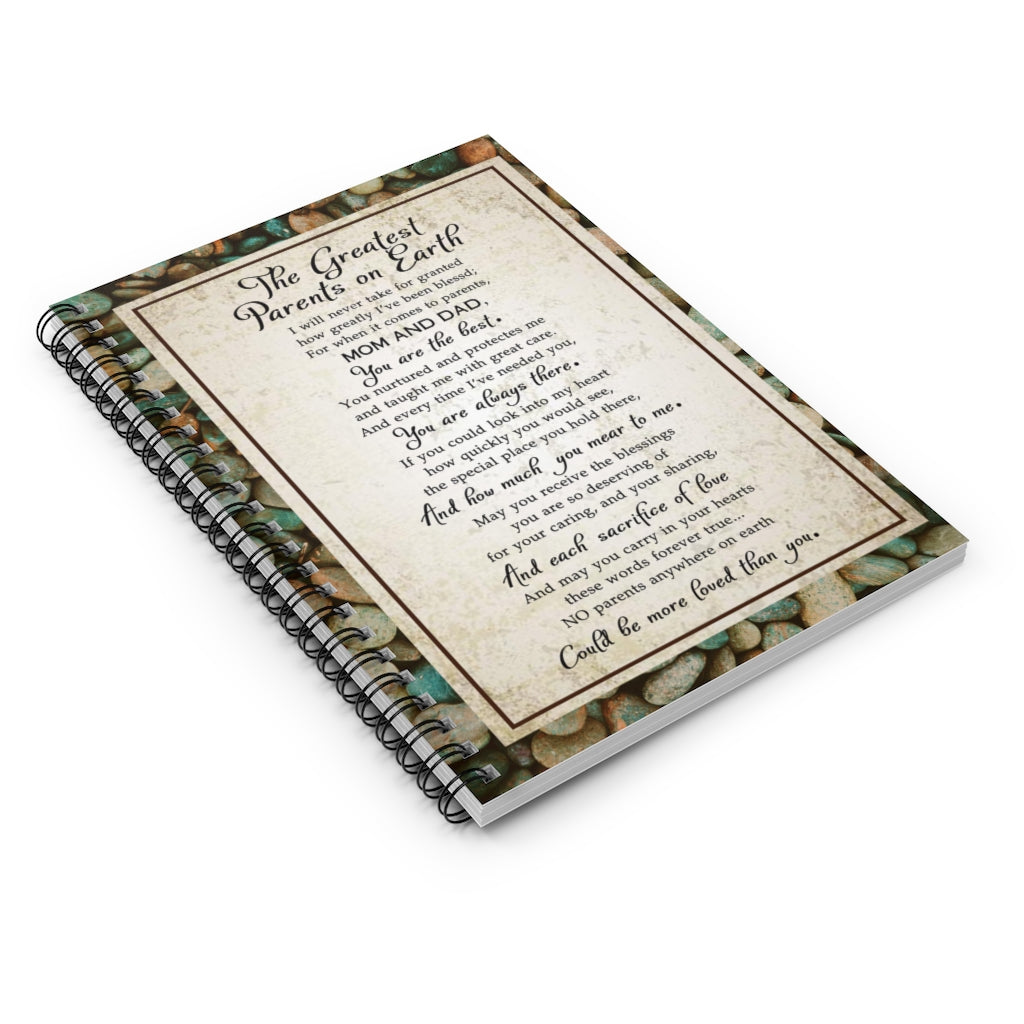 The Greatest
Parents on Earth
I will never take for granted
how greatly I've been blessd;
For when it comes to parents,
MOM AND DAD,
You are the best.
You nurtured and protectes me
and taught me with great care.
And every time I've needed you,
You are always there.
If you could look into my heart
how quickly you would see,
the special place you hold there,
And how much you mear to me.
May you receive the blessings
you are so deserving of
for your caring, and your sharing,
And each sacrifice of love
And may you carry in your hearts
these words forever true...
NO parents anywhere on earth
Could be more loved than you.